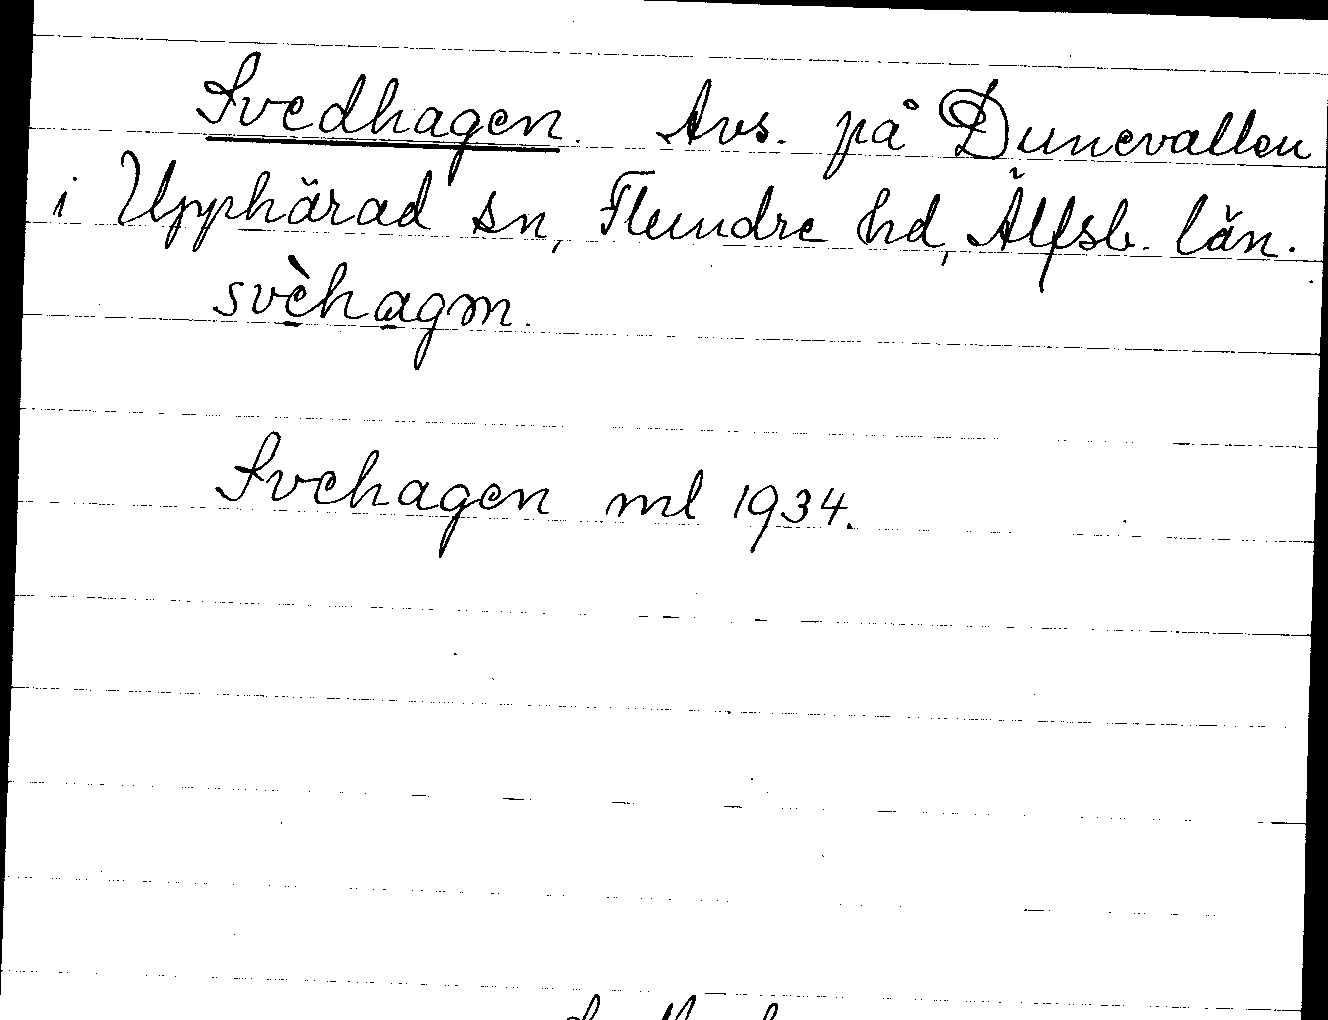 Svedhagen. Avs. på Dunevallen
i Upphärad sn, Flundre hd, Älfsb. län.
svèhagm.
Svehagen ml 1934.